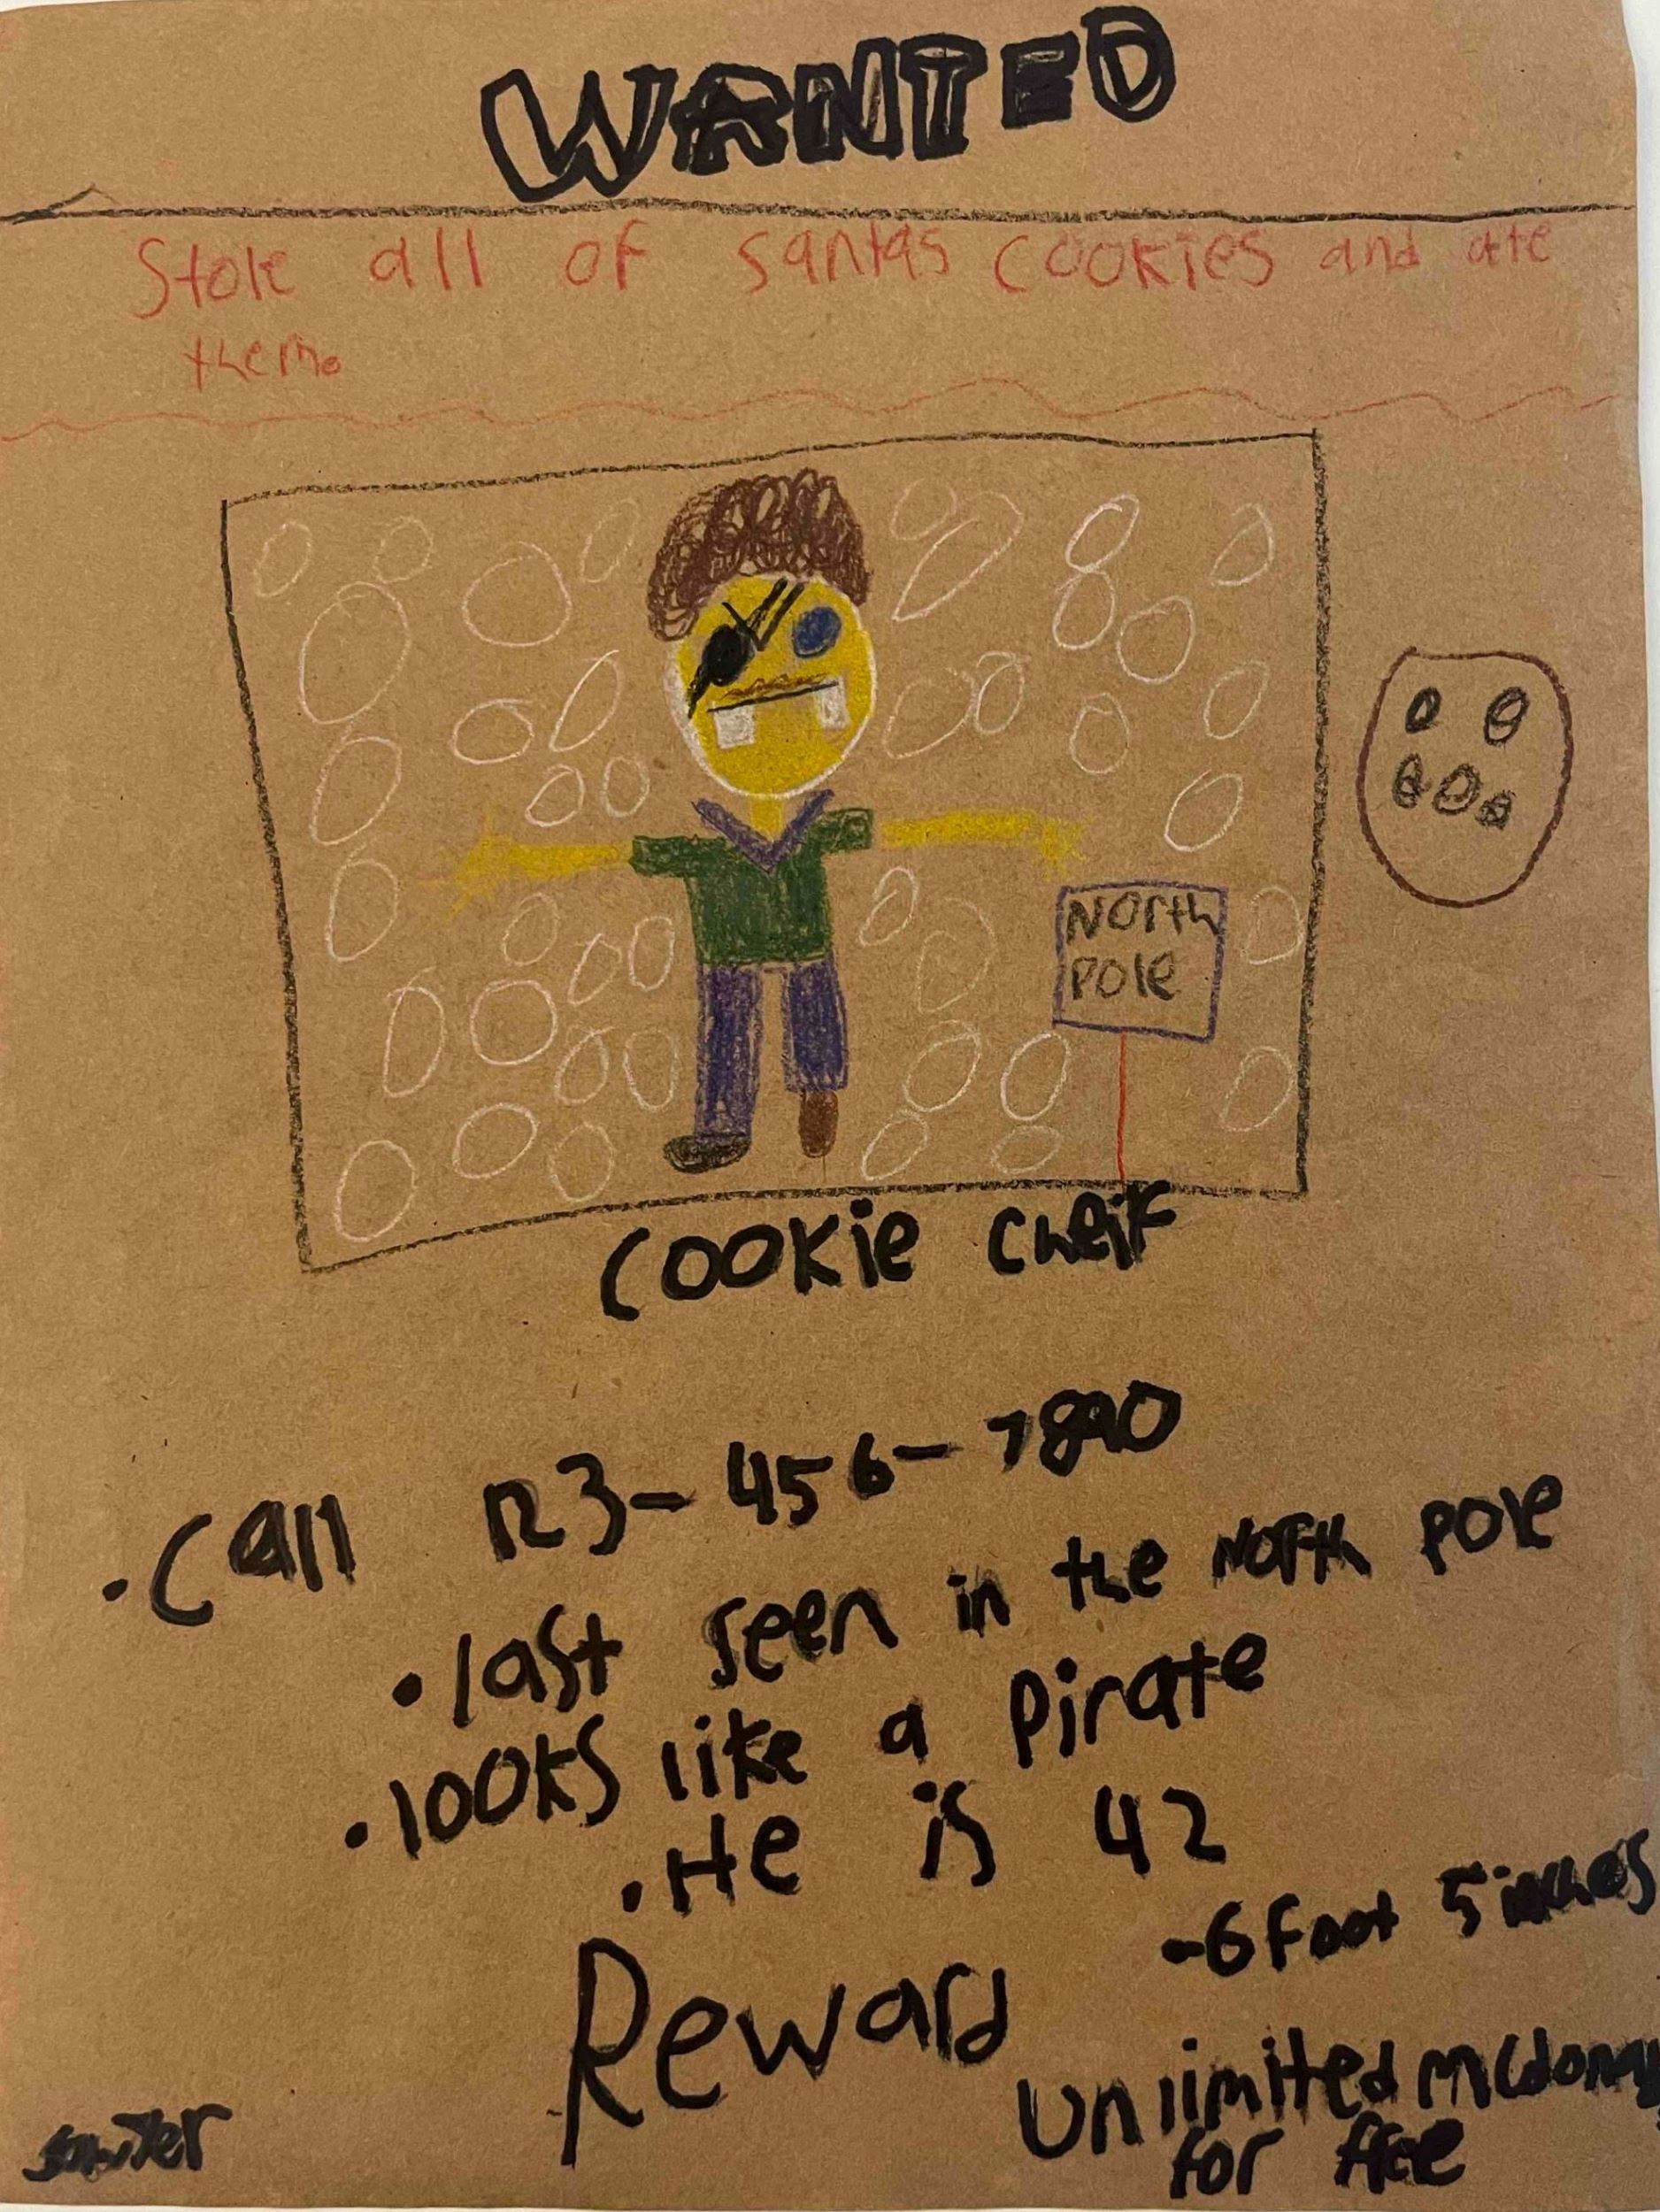 WANTED
Stole all of santas cookies and ate
them.
North
pole
Cookie cheif
• Call 123-456-7890
• last seen in the North pole
• looks like a pirate
• He is 42
-6 foot 5 inches
Reward
Unlimited mcdona
for free